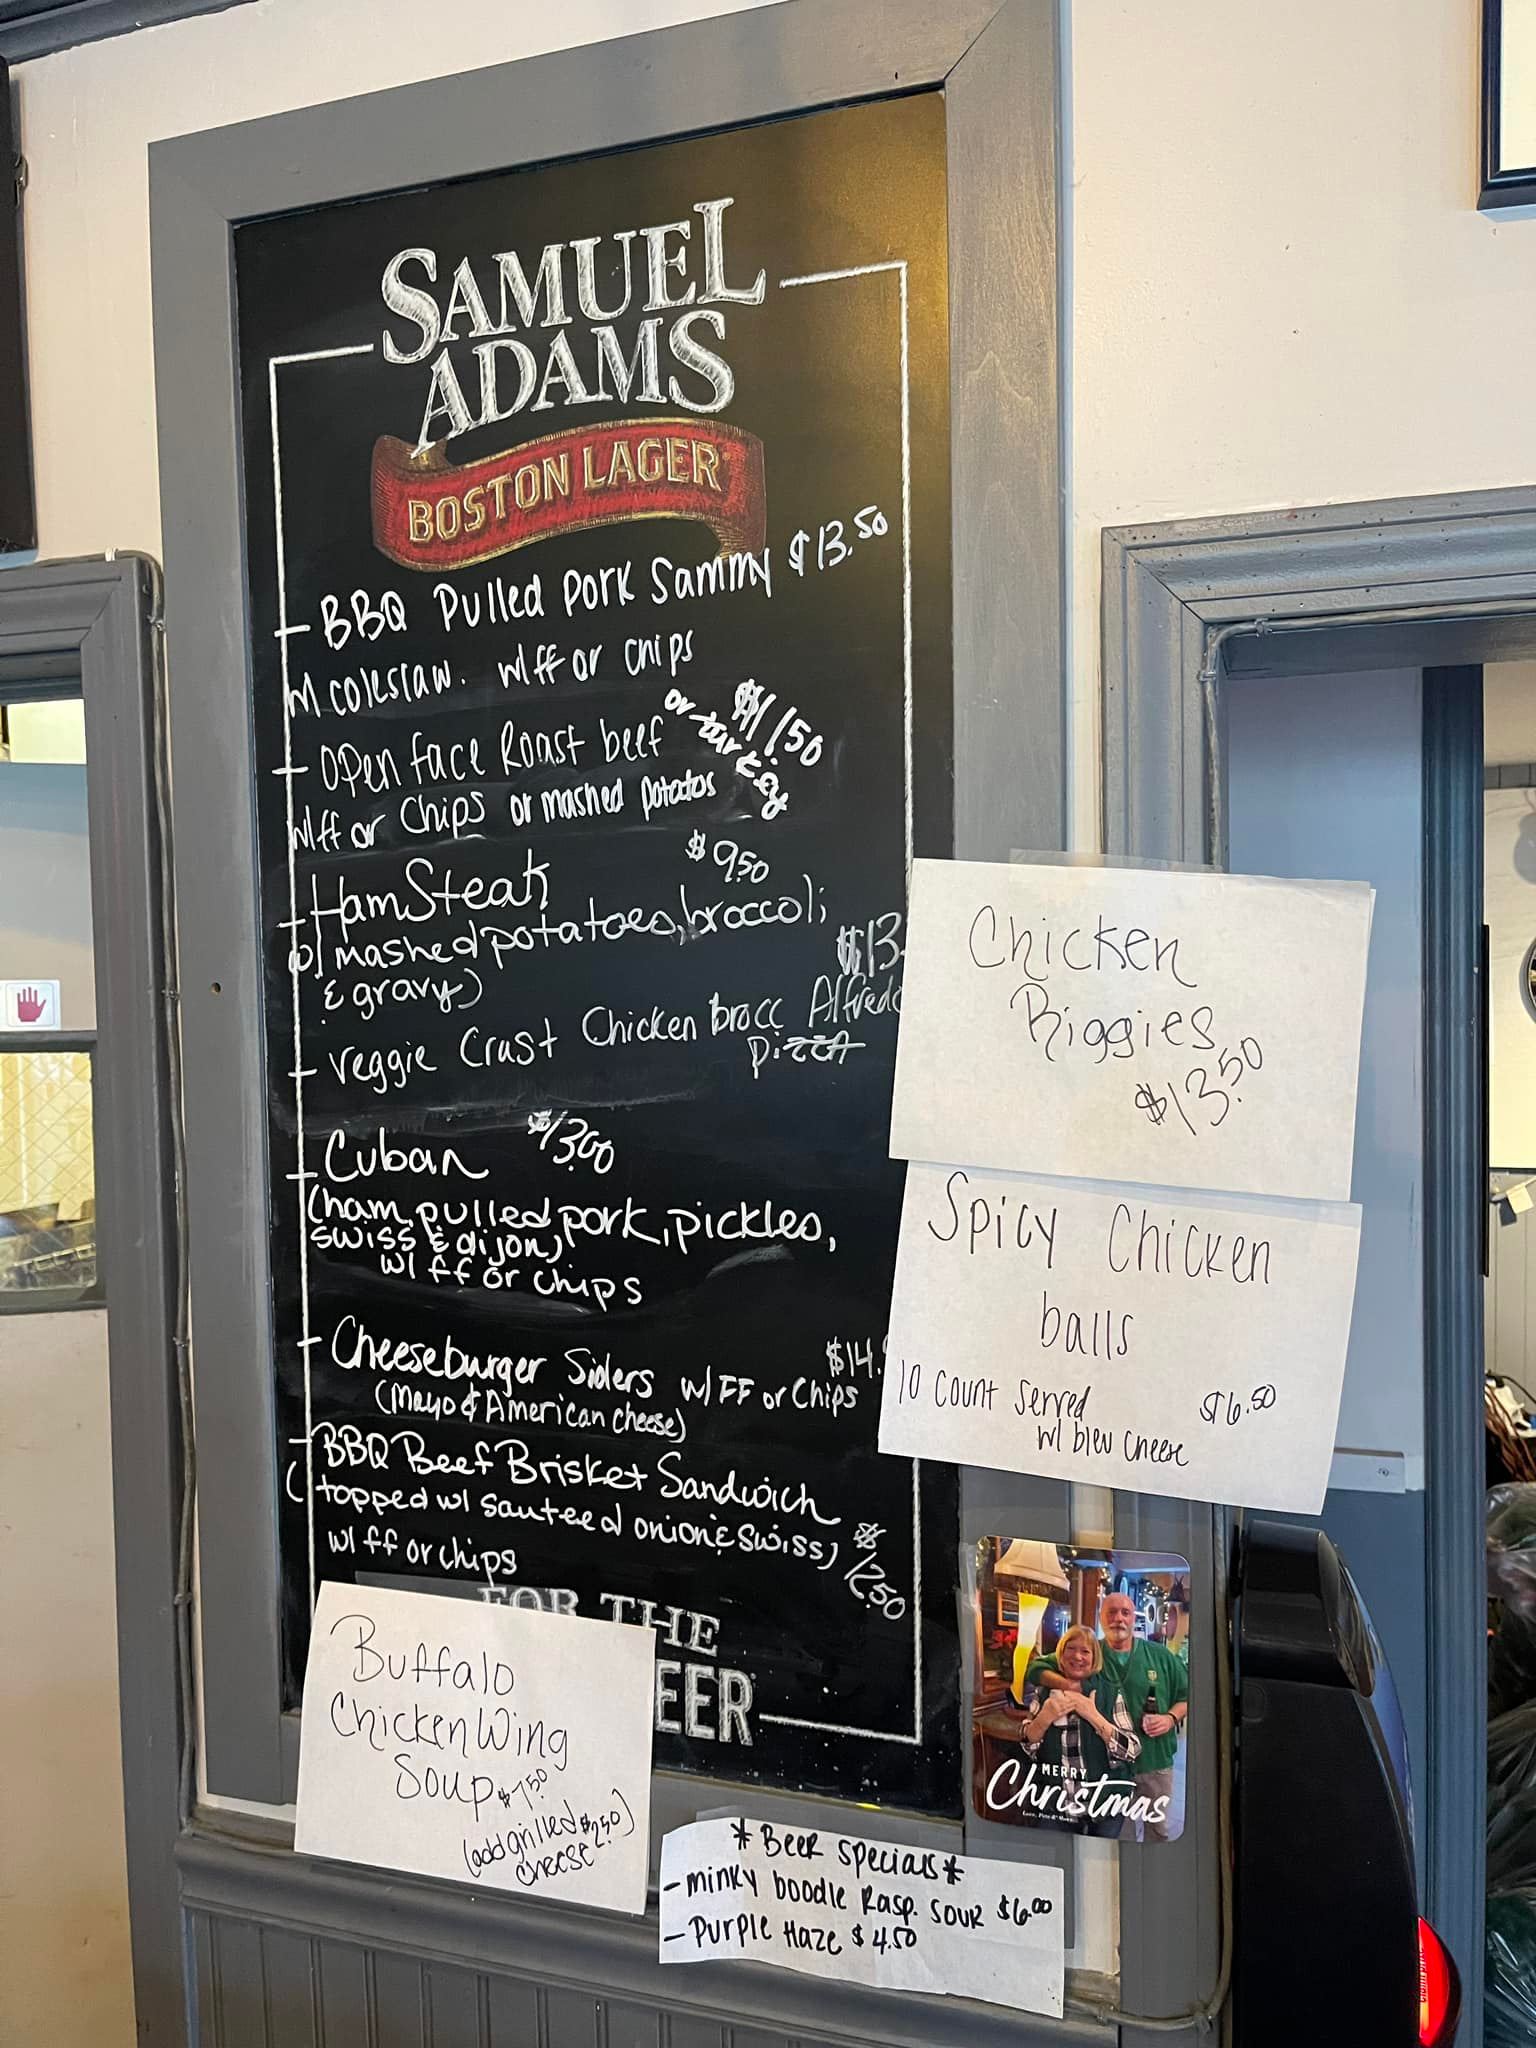 SAMUEL
ADAMS
BOSTON LAGER
- BBQ Pulled pork Sammy $13.50
w coleslaw. w/ ff or chips
- Open face Roast beef or turkey $11.50
w/ ff or Chips or mashed potatos
- Ham Steak $9.50
w/ mashed potatoes, broccoli
& gravy)
- veggie Crust Chicken brocc Alfredo $13.
pizza
- Cuban $13.00
(ham, pulled pork, pickles,
swiss & dijon)
w/ ff or chips
- Cheeseburger Sliders w/ FF or Chips $14.
(Mayo & American cheese)
- BBQ Beef Brisket Sandwich
(topped w/ sauteed onion & swiss) $12.50
w/ ff or chips
FOR THE
EER
Chicken
Riggies
$13.50
Spicy Chicken
balls
10 count served $6.50
w/ bleu cheese
Buffalo
Chicken Wing
Soup $7.50
(add grilled $2.50)
cheese
MERRY
Christmas
* Beer specials *
- minky boodle Rasp. sour $6.00
- Purple Haze $4.50